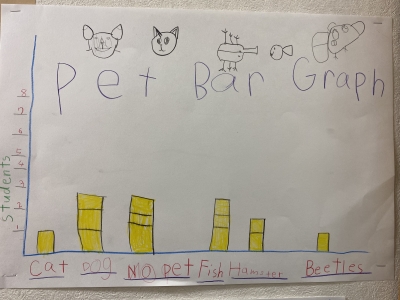 Pet Bar Graph
8
7
6
5
4
3
2
1
Students
Cat Dog No pet Fish Hamster Beetles